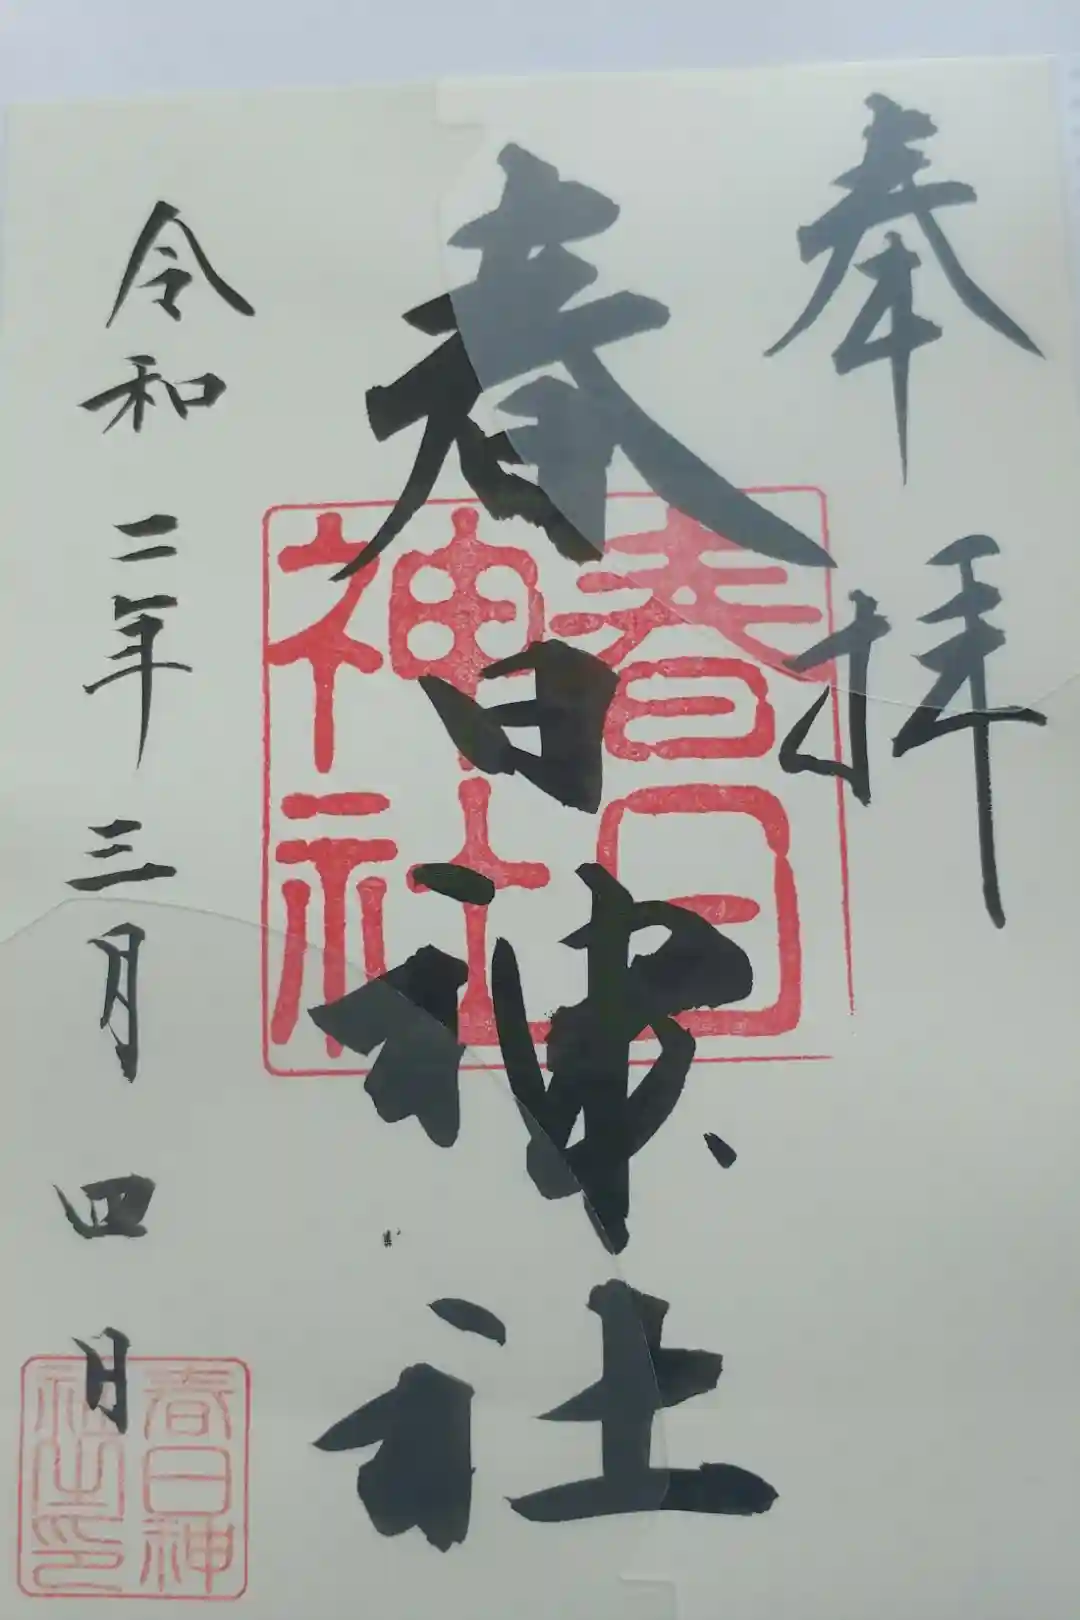 奉拝
春日神社
春日
神社
令和二年三月四日
春日神
社之印